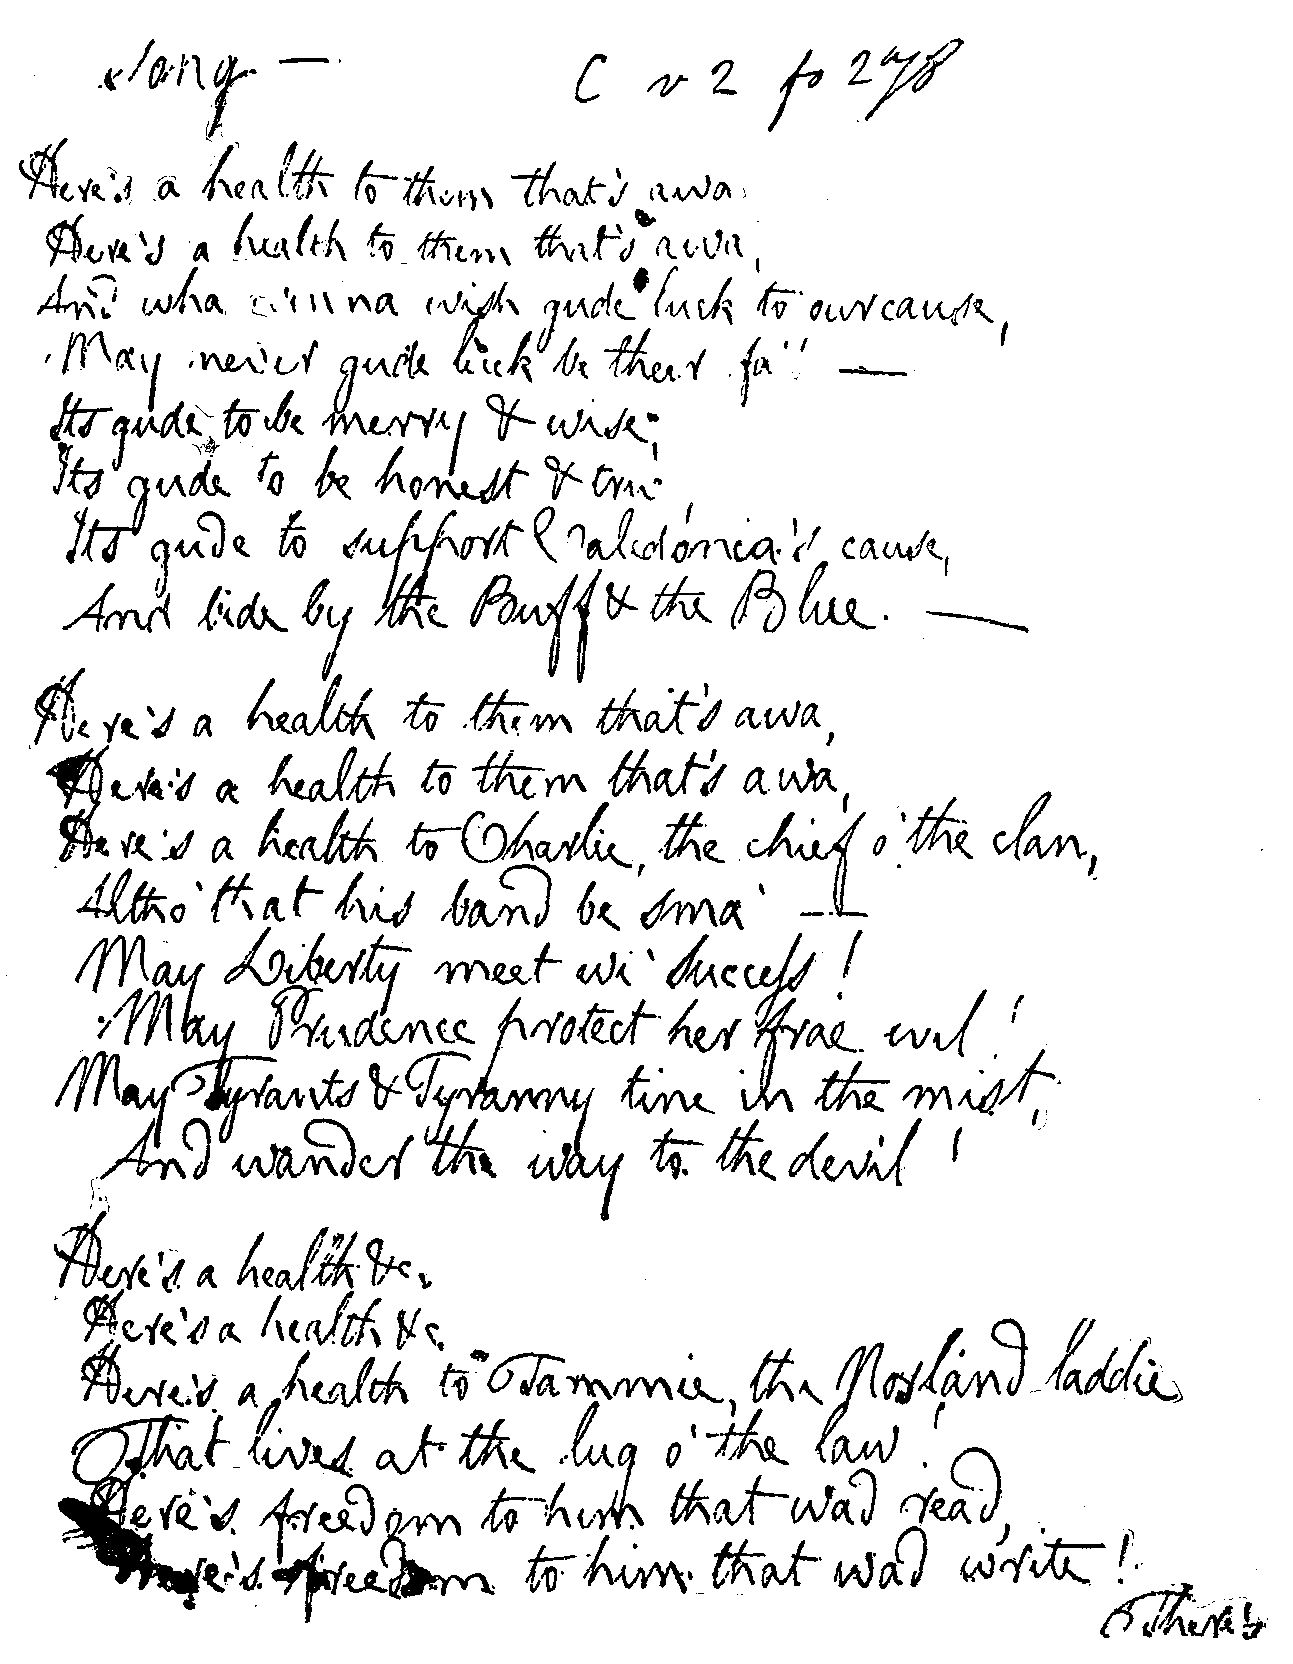 Song —
C v 2 fo 278
Here's a health to them that's awa
Here's a health to them that's awa,
And wha winna wish gude luck to our cause,
May never gude luck be their fa'! —
Its gude to be merry & wise,
Its gude to be honest & true,
Its gude to support Caledonia's cause,
And bide by the Buff & the Blue. —
Here's a health to them that's awa,
Here's a health to them that's awa,
Here's a health to Charlie, the chief o' the clan,
Altho' that his band be sma' —
May Liberty meet wi' success!
May Prudence protect her frae evil!
May Tyrants & Tyranny tine in the mist,
And wander the way to the devil!
Here's a health &c.
Here's a health &c.
Here's a health to Tammie, the Norland laddie
That lives at the lug o' the law!
Here's freedom to him that wad read,
Here's freedom to him that wad write!
There's